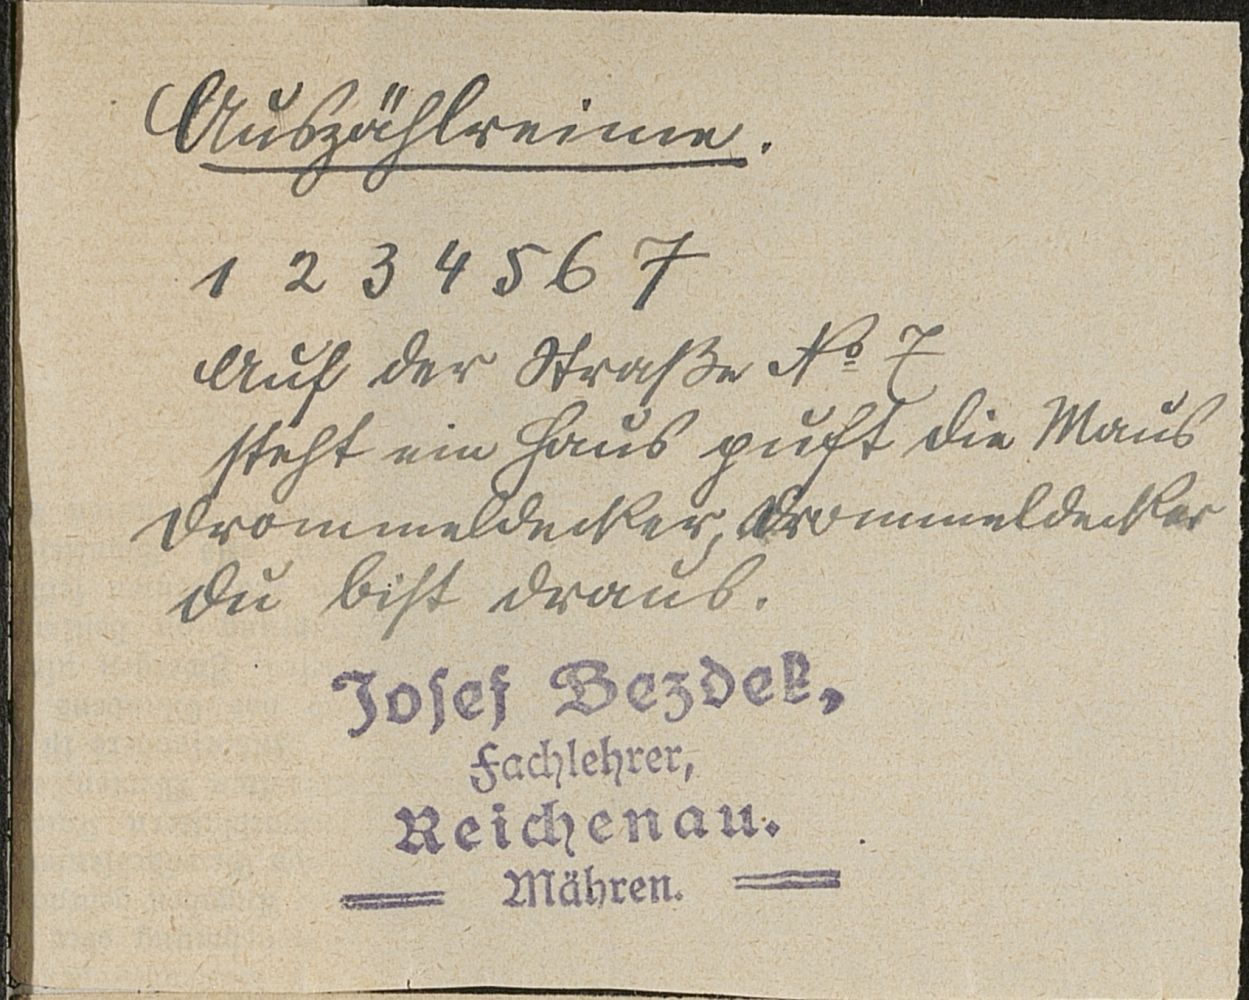 Auszählreime.
1 2 3 4 5 6 7
Auf der Straße No 7
steht ein Haus guckt die Maus
Drommeldecker, Drommeldecker
du bist draus.
Josef Bezdek,
Fachlehrer,
Reichenau.
Mähren.